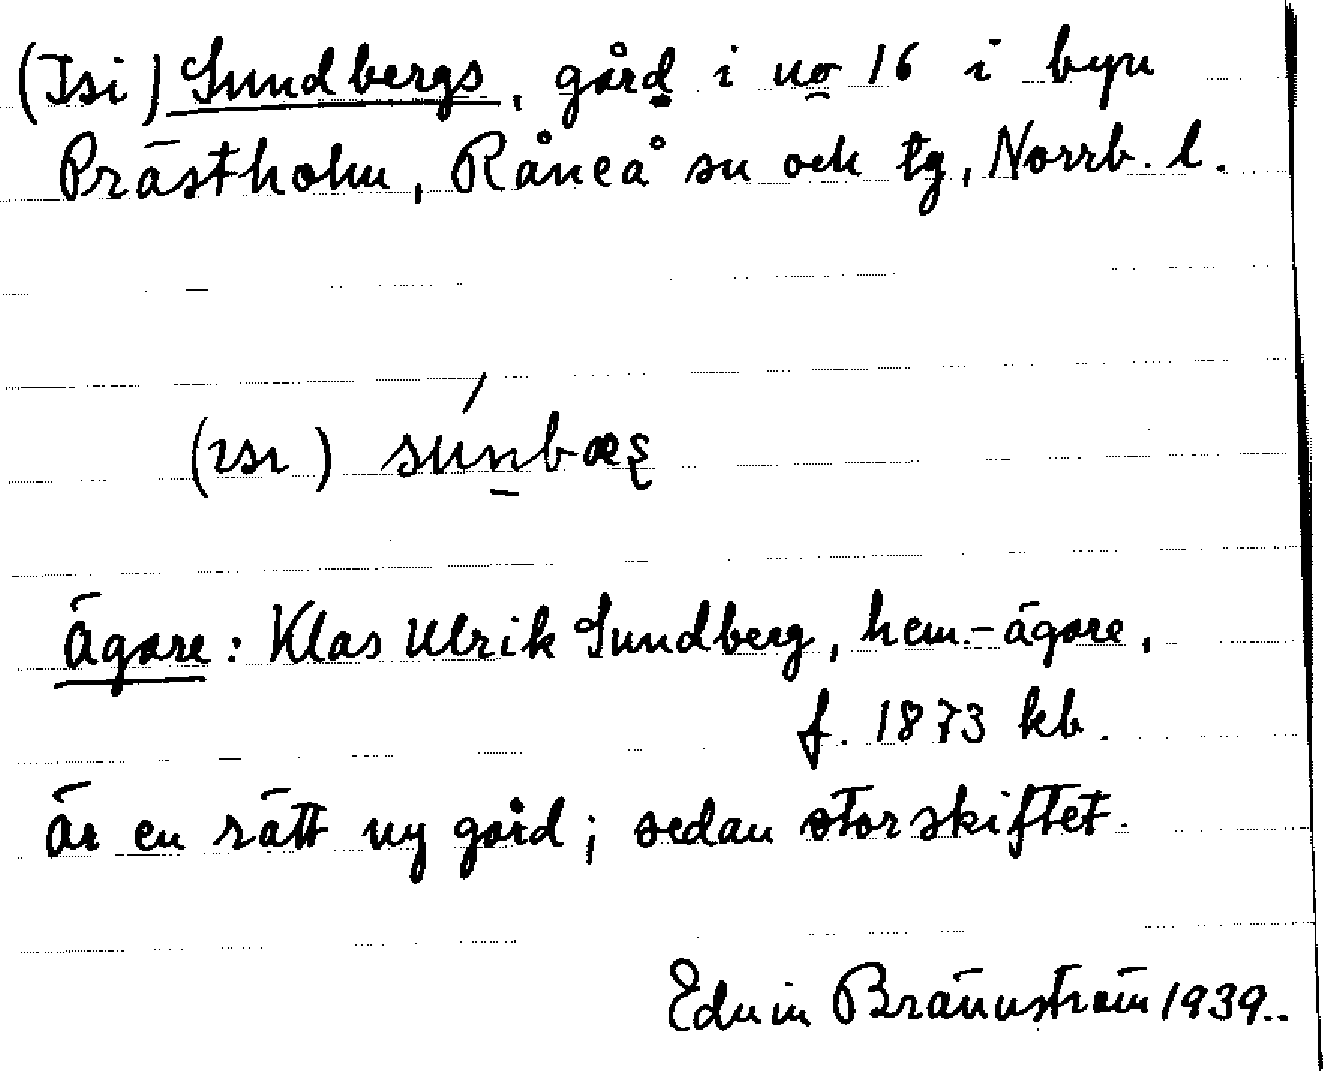 (Isi) Sundbergs, gård i no 16 i byn
Prästholm, Råneå sn och tg, Norrb. l.
(ısı) súnbæş
Ägare: Klas Ulrik Sundberg, hem.-ägare,
f. 1873 kb.
Är en rätt ny gård; sedan storskiftet.
Edvin Brännström 1939.